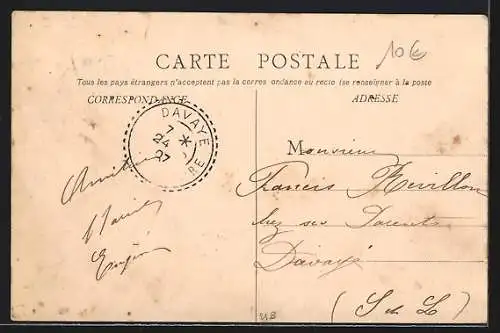 CARTE POSTALE
10€
Tous les pays étrangers n'acceptent pas la corres ondance au recto (se renseigner à la poste
CORRESPONDANCE
ADRESSE
DAVAYE
7
24
07
RE
Monsieur
Francis Revillon
chez ses Parents
Davayé
(S & L)